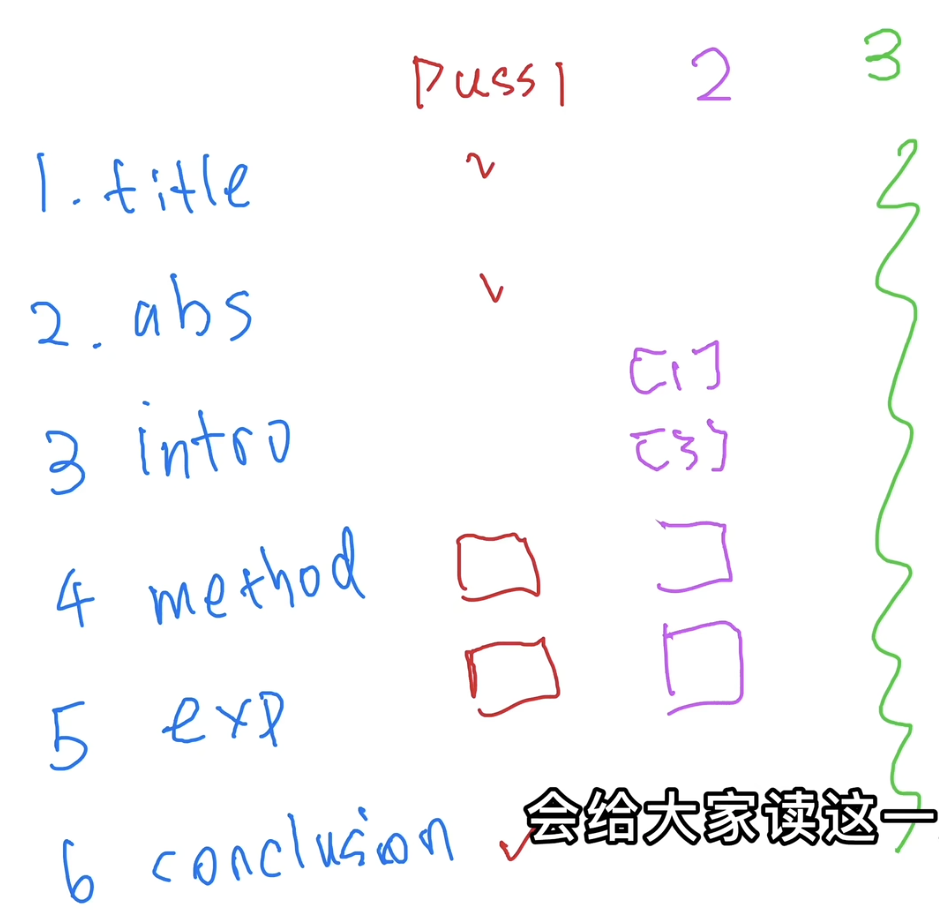 Pass 1 2 3
1. title
2. abs
[1]
3 intro [3]
4 method
5 exp
6 conclusion
会给大家读这一